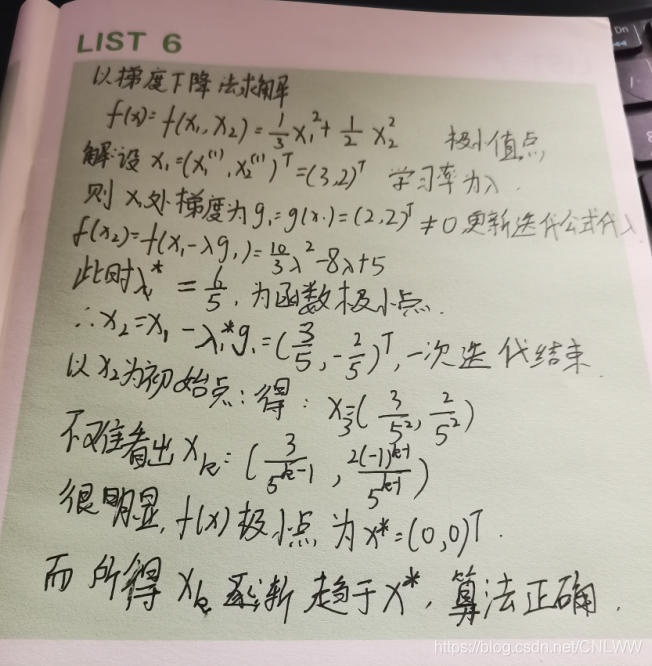 LIST 6
以梯度下降法求解
f(x)=f(x₁,x₂)=1/3 x₁²+1/2 x₂² 极小值点
解:设 x₁=(x₁⁽¹⁾,x₂⁽¹⁾)ᵀ=(3,2)ᵀ 学习率为λ.
则 x₁处梯度为g₁=g(x₁)=(2,2)ᵀ≠0 更新迭代公式代入
f(x₂)=f(x₁-λg₁)=10/3 λ²-8λ+5
此时λ₁*=6/5,为函数极小点.
∴x₂=x₁-λ₁*g₁=(3/5,-2/5)ᵀ,一次迭代结束.
以x₂为初始点:得:x₃=(3/5²,2/5²)
不难看出xₖ=(3/5ᵏ⁻¹,2(-1)ᵏ⁻¹/5ᵏ⁻¹)
很明显,f(x)极小点为x*=(0,0)ᵀ.
而所得xₖ逐渐趋于x*,算法正确.
Dn
https://blog.csdn.net/CNLWW